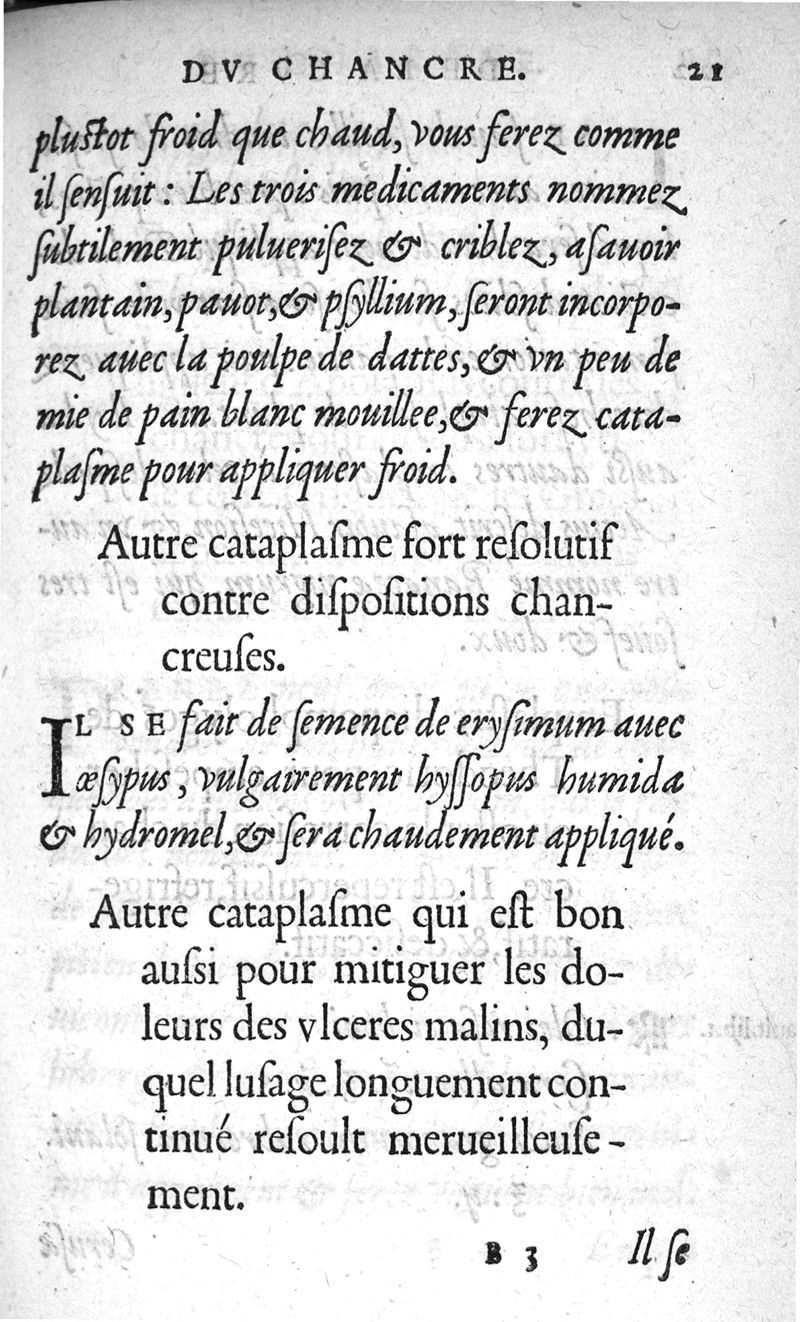 DV CHANCRE. 21
pluſtot froid que chaud, vous ferez comme
il ſenſuit : Les trois medicaments nommez
ſubtilement pulueriſez & criblez, aſauoir
plantain, pauot, & pſyllium, ſeront incorpo-
rez auec la poulpe de dattes, & vn peu de
mie de pain blanc mouillee, & ferez cata-
plaſme pour appliquer froid.
Autre cataplaſme fort reſolutif
contre diſpoſitions chan-
creuſes.
IL SE fait de ſemence de eryſimum auec
œſypus, vulgairement hyſſopus humida
& hydromel, & ſera chaudement appliqué.
Autre cataplaſme qui eſt bon
auſsi pour mitiguer les do-
leurs des vlceres malins, du-
quel luſage longuement con-
tinué reſoult merueilleuſe-
ment.
B 3 Il ſe